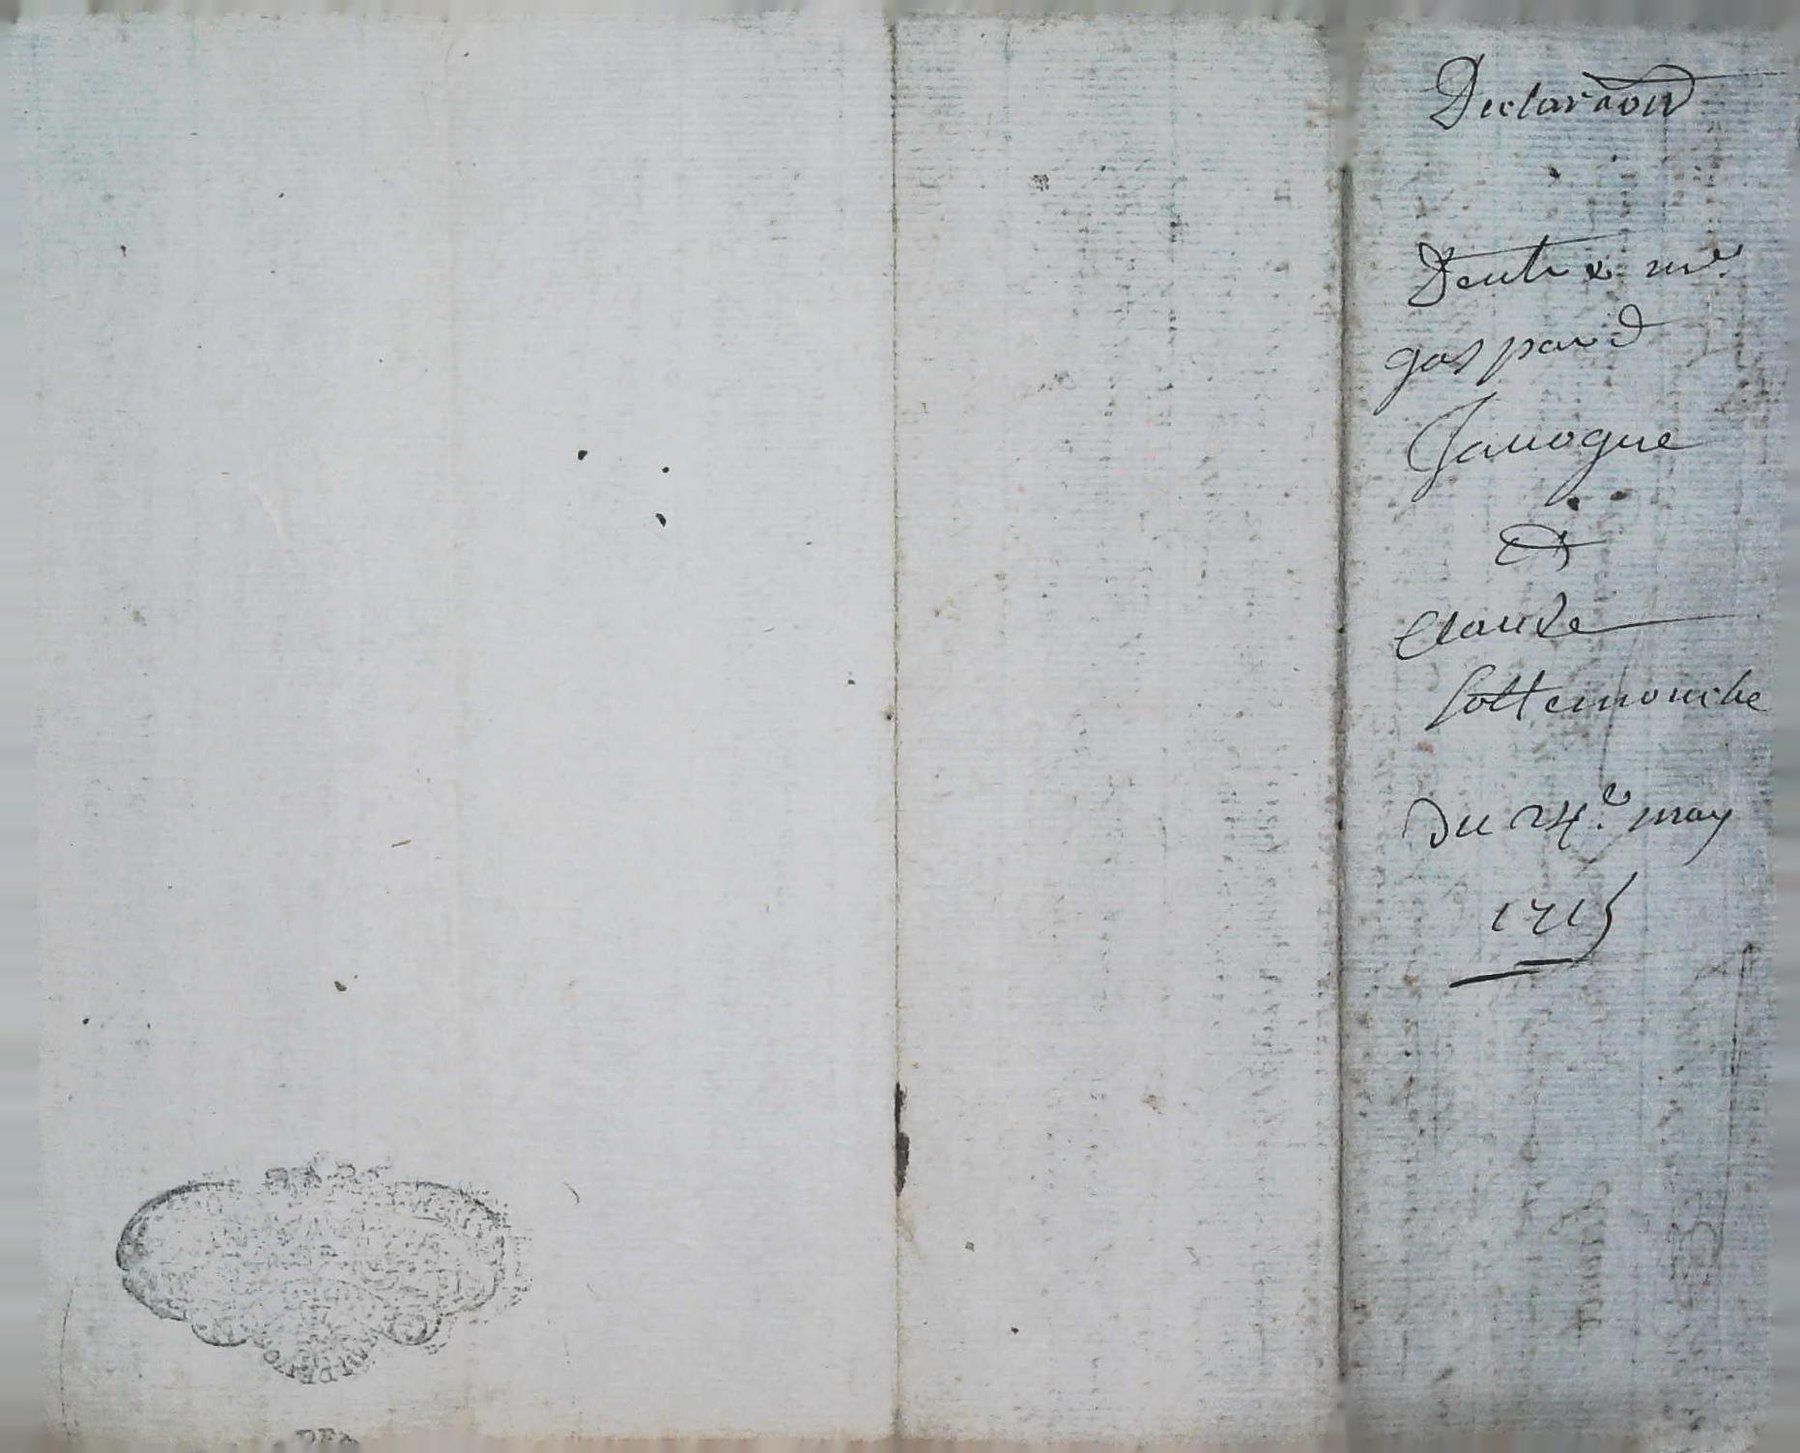 Declaraõn
Dentre me
gaspard
Jauogue
Et
Claude
Sottemouche
du 24e. may
1715